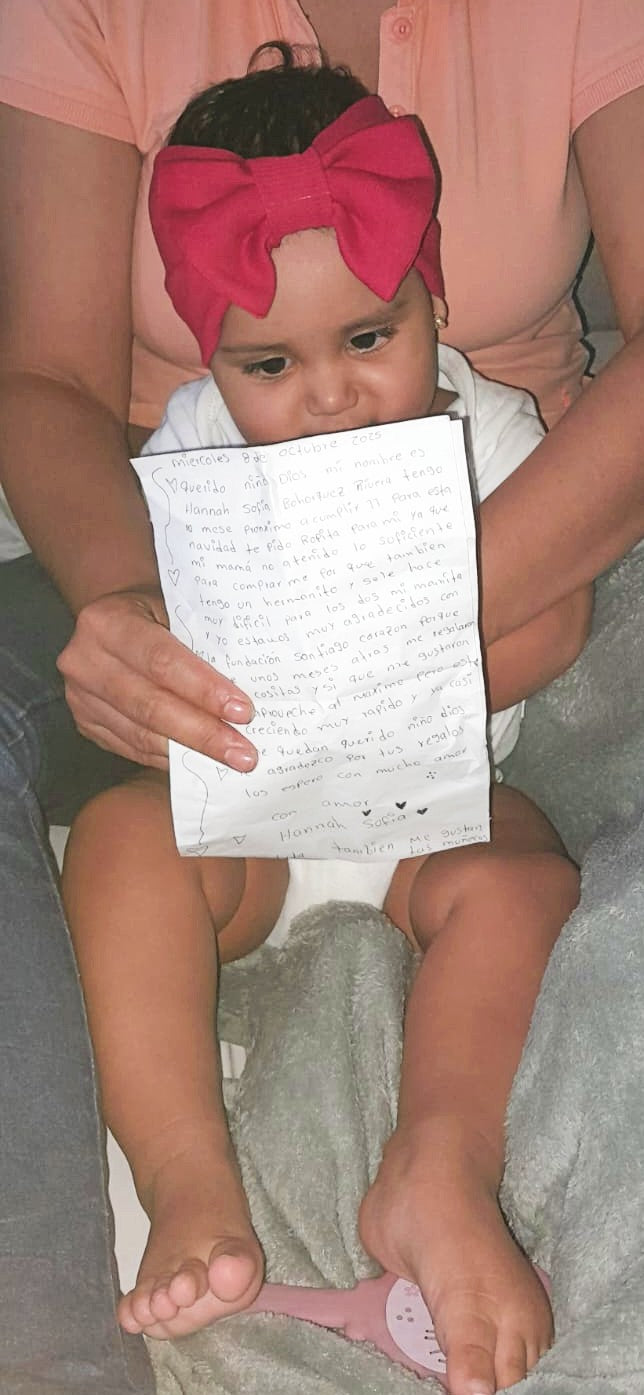 miercoles 8 de octubre 2025
Querido niño Dios mi nombre es
Hannah Sofia Bohorquez Rivera tengo
10 mese proximo a cumplir 11 para esta
navidad te Pido Ropita Para mi ya que
mi mamá no a tenido lo suficiente
para comprarme por que tambien
tengo un hermanito y se le hace
muy dificil para los dos mi mamita
y yo estamos muy agradecidos con
la fundación Santiago corazon porque
unos meses atras me regalaron
cositas y si que me gustaron
aproveche al maximo pero este
creciendo muy rapido y ya casi
me quedan querido niño dios
agradezco por tus regalos
los espero con mucho amor
con amor
Hannah Sofia
tambien me gustan
las muñecas